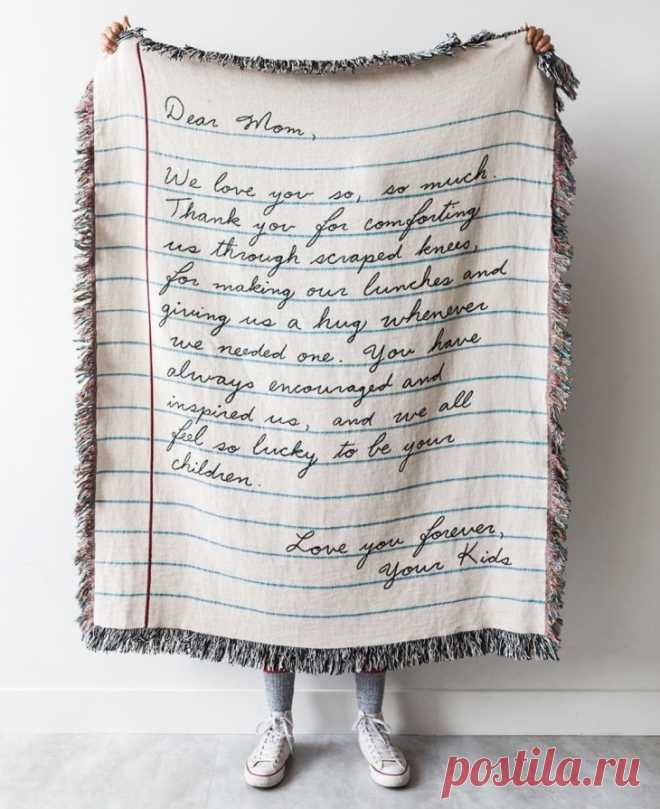 Dear Mom,
We love you so, so much.
Thank you for comforting
us through scraped knees,
for making our lunches and
giving us a hug whenever
we needed one. You have
always encouraged and
inspired us, and we all
feel so lucky to be your
children.
Love you forever,
Your Kids
postila.ru